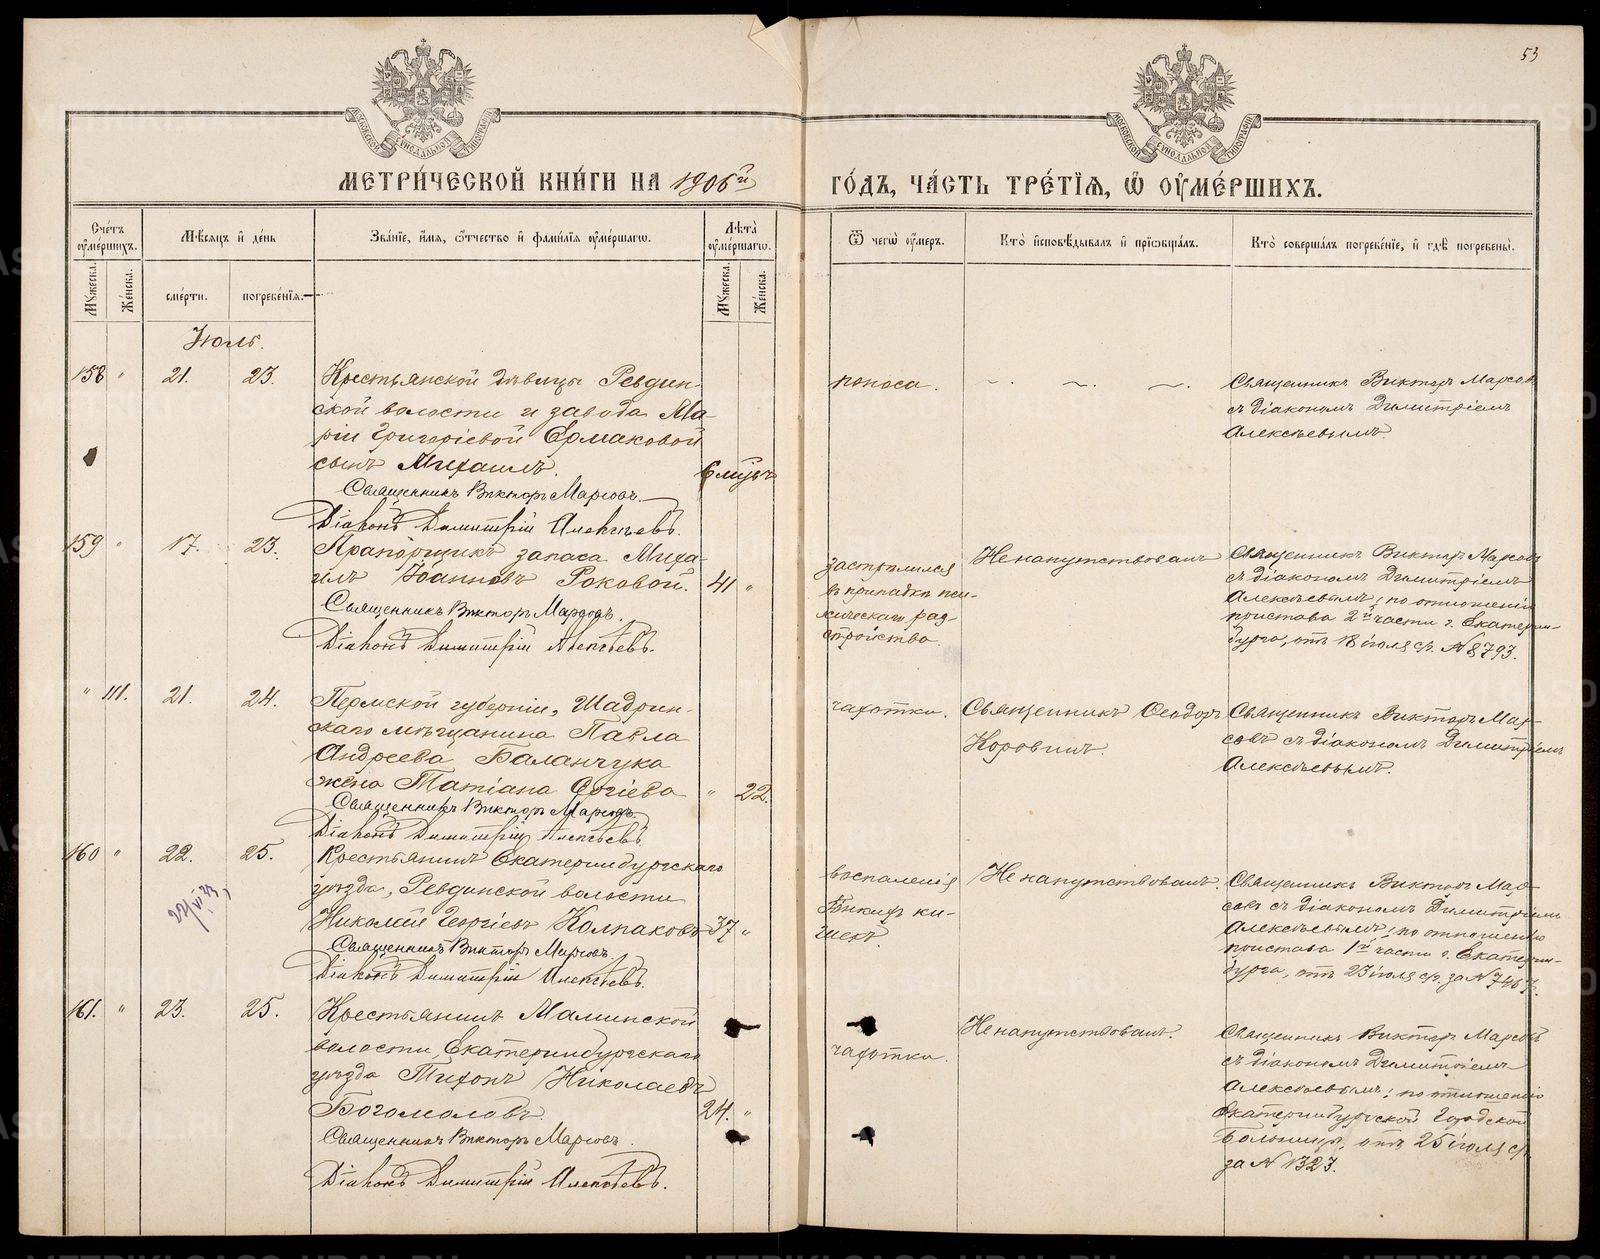 53
МЕТРИ́ЧЕСКОЙ КНИ́ГИ НА 1906й ГО́ДЪ, ЧА́СТЬ ТРЕ́ТІѦ, Ѿ ОУМЕ́РШИХЪ.
Сче́тъ оуме́ршихъ.
Мѣсяцъ и де́нь
Зва́нїе, и́мя, ѻ́тчество и фами́лїя оуме́ршагѡ.
Лѣта̀ оуме́ршагѡ.
Ѿ чегѡ̀ оу́меръ.
Кто̀ и҆сповѣ́дывалъ и҆ прїѡбща́лъ.
Кто̀ соверша́лъ погребе́нїе, и҆ гдѣ̀ погребены̀.
Му́жеска.
Же́нска.
сме́рти.
погребе́нїя.
Му́жеска.
Же́нска.
Іюль.
158 " 21. 23.
Крестьянской дѣвицы Ревдин-
ской волости и завода Ма-
ріи Григоріевой Ермаковой
сынъ Михаилъ.
6 мѣсъ
Священникъ Викторъ Марсовъ.
Діаконъ Димитрій Алексѣевъ.
поноса.
Священникъ Викторъ Марсовъ
съ діакономъ Димитріемъ
Алексѣевымъ.
159 " 17. 23.
Прапорщикъ запаса Миха-
илъ Іоанновъ Роковой.
41 "
Священникъ Викторъ Марсовъ.
Діаконъ Димитрій Алексѣевъ.
застрѣлился
въ припадкѣ пси-
хическаго раз-
стройства.
Не напутствованъ
Священникъ Викторъ Марсовъ
съ діакономъ Димитріемъ
Алексѣевымъ; по отношенію
пристава 2й части г. Екатерин-
бурга, отъ 18 іюля с/г. № 8793.
" 111. 21. 24.
Пермской губерніи, Шадрин-
скаго мѣщанина Павла
Андреева Баланчука
жена Татіана Сегіева
" 22.
Священникъ Викторъ Марсовъ.
Діаконъ Димитрій Алексѣевъ.
чахотки.
Священникъ Ѳеодоръ
Коровинъ.
Священникъ Викторъ Мар-
совъ съ діакономъ Димитріемъ
Алексѣевымъ.
160 " 22. 25.
Крестьянинъ Екатеринбургскаго
уѣзда, Ревдинской волости
Николай Георгіевъ Колпаковъ
37 "
Священникъ Викторъ Марсовъ
Діаконъ Димитрій Алексѣевъ.
воспаленія
тонкихъ ки-
шекъ.
Не напутствованъ.
Священникъ Викторъ Мар-
совъ съ діакономъ Димитріемъ
Алексѣевымъ; по отношенію
пристава 1й части г. Екатерин-
бурга, отъ 23 іюля с/г. за № 7467.
161. " 23. 25.
Крестьянинъ Маминской
волости, Екатеринбургскаго
уѣзда Тихонъ Николаевъ
Богомоловъ.
24. "
Священникъ Викторъ Марсовъ.
Діаконъ Димитрій Алексѣевъ.
чахотки.
Не напутствованъ.
Священникъ Викторъ Марсовъ
съ діакономъ Димитріемъ
Алексѣевымъ; по отношенію
Екатеринбургской Городской
Больницы, отъ 25 іюля с/г.
за № 1323.